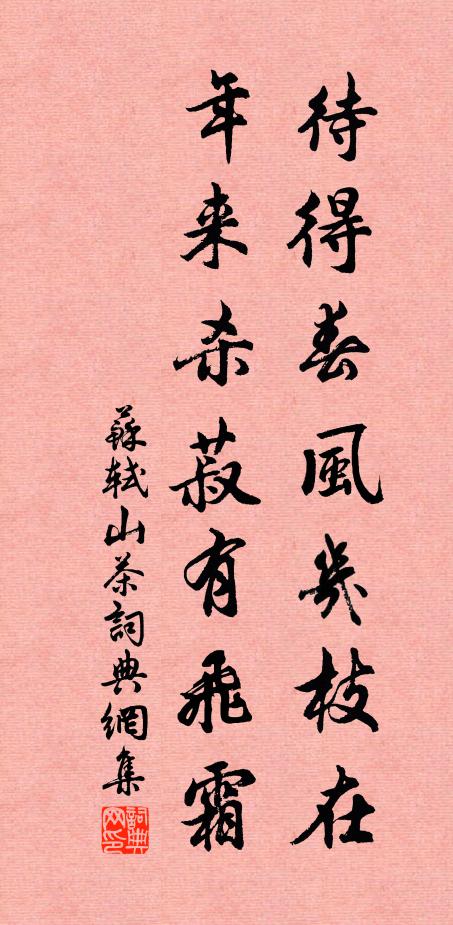 待得春風幾枝在
年来杀菽有飛霜
蘇軾山茶詞典網集
詞典网印